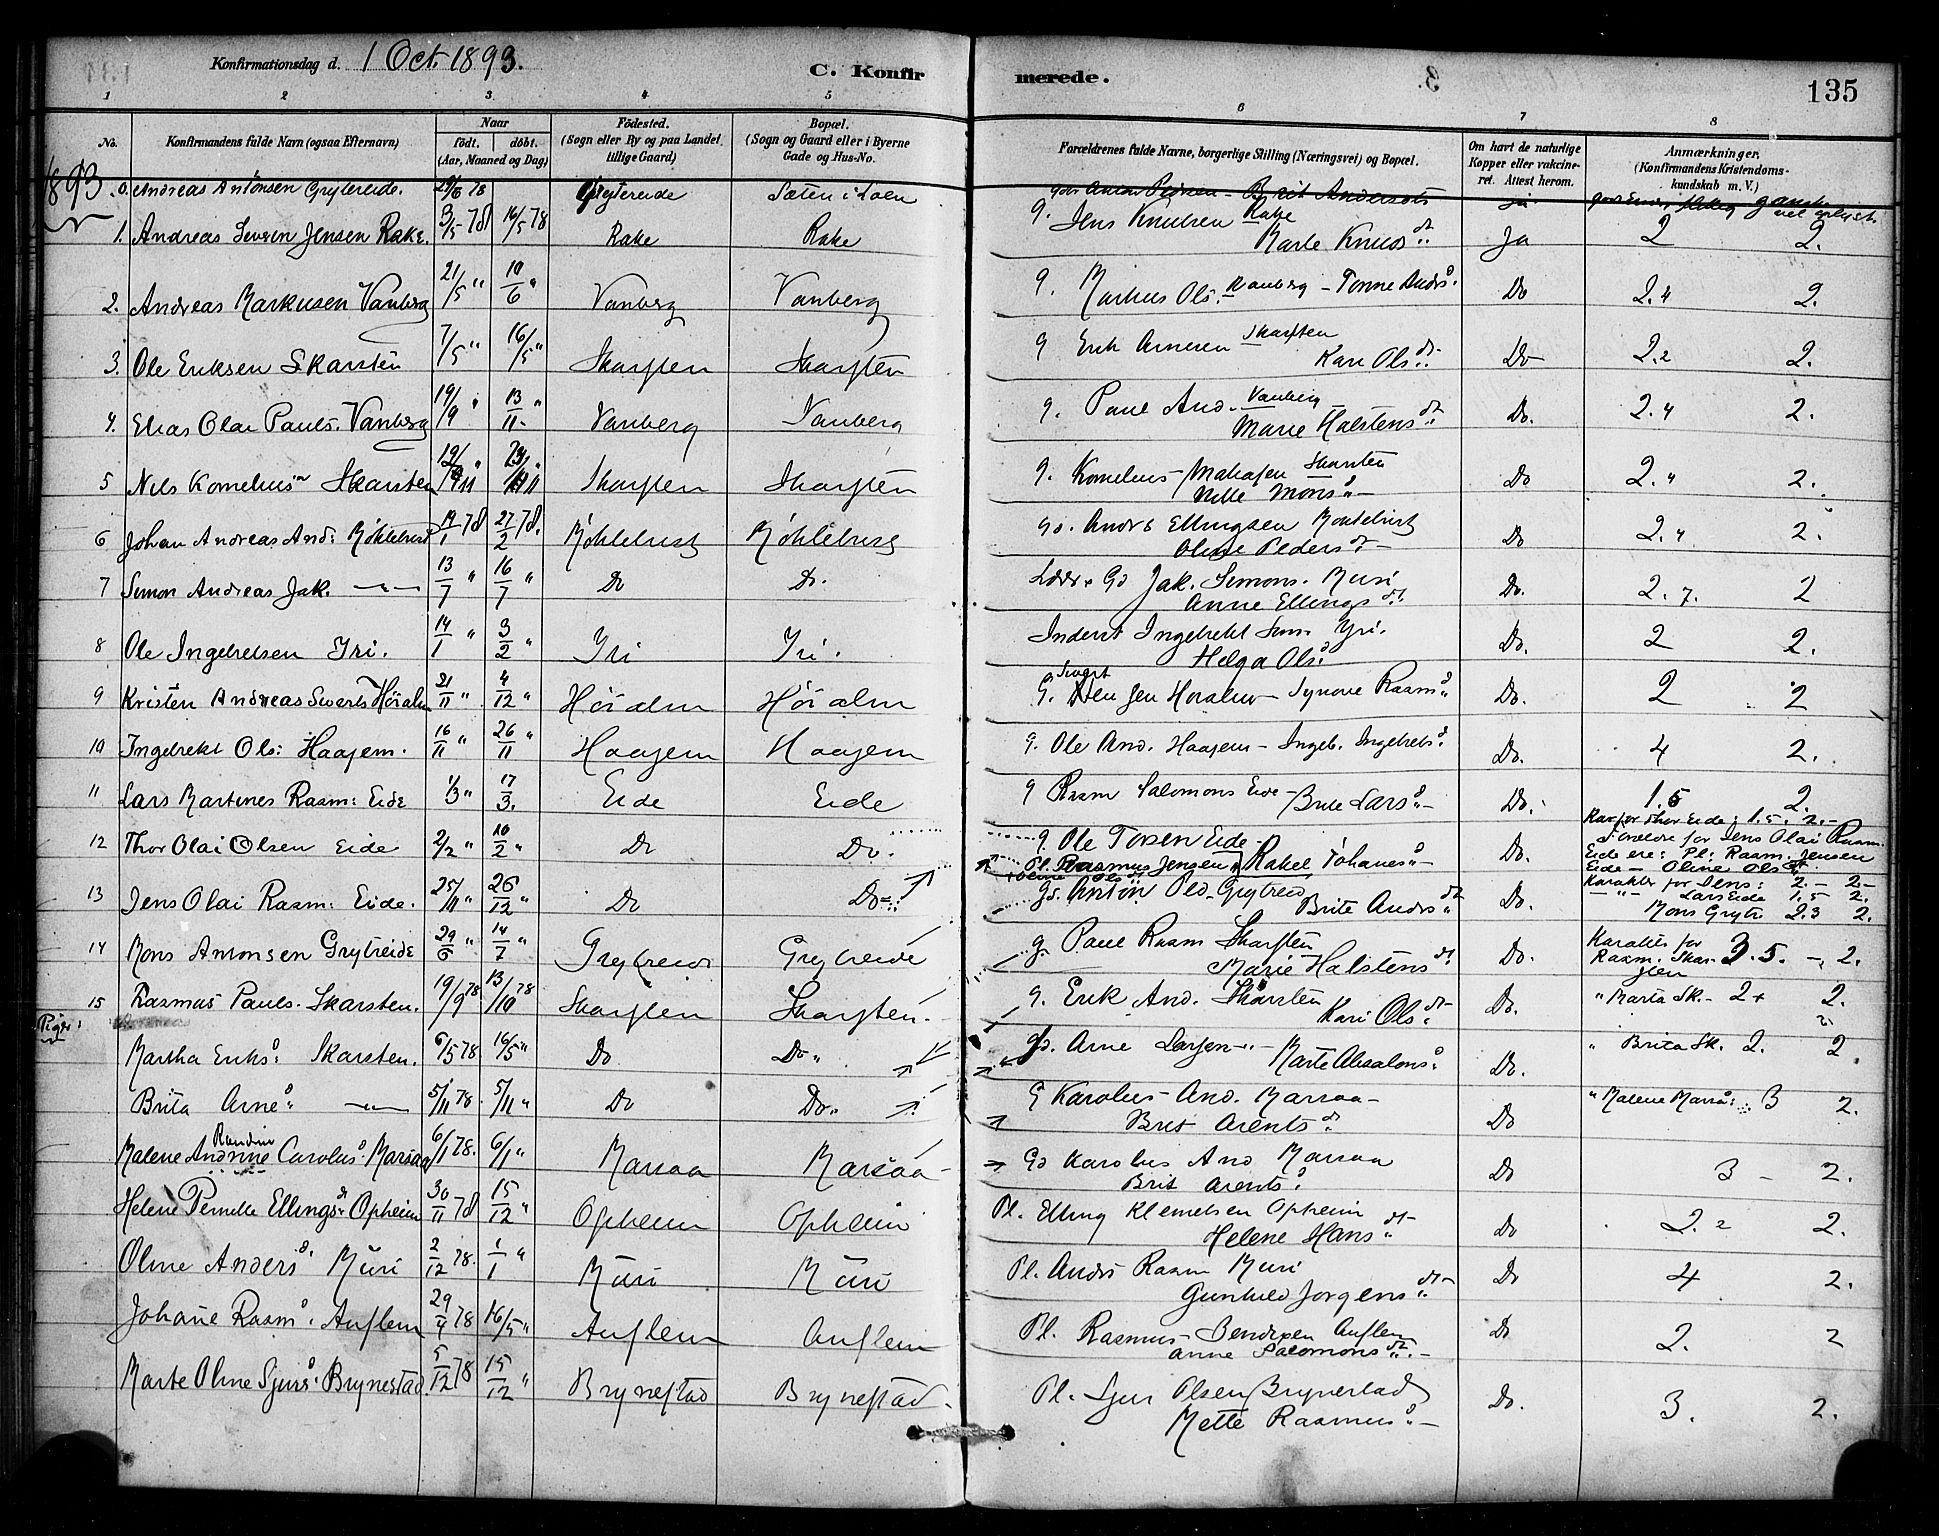 Konfirmationsdag d. 1 Oct. 1893.
C. Konfirmerede.
135
1 2 3 4 5 6 7 8
No.
Konfirmandens fulde Navn (ogsaa Efternavn)
Naar
födt. döbt.
(Aar, Maaned og Dag)
Födested.
(Sogn eller By og paa Landet tillige Gaard)
Bopæl.
(Sogn og Gaard eller i Byerne Gade og Hus-No.
Forældrenes fulde Navne, borgerlige Stilling (Næringsvei) og Bopæl.
Om havt de naturlige Kopper eller vakcineret. Attest herom.
Anmærkninger.
(Konfirmandens Kristendomskundskab m. V.)
1893
0. Andreas Antonsen Grytereide. 78 Grytereide Sæten i Loen
1. Andreas Severin Jensen Rake. 3/5 78 16/5 78 Rake Rake g. Jens Knudsen Rake Marte Knuds dt Ja 2 2.
2. Andreas Markusen Vanberg 21/5 " 10/6 " Vanberg Vanberg g. Markus Ols. Vanberg - Tonne Anders d. Do 2.4 2.
3. Ole Eriksen Skarsten 7/5 " 16/5 " Skarsten Skarsten g Erik Arnesen Skarsten Kari Ols dt. Do 2.2 2.
4. Elias Olai Pauls. Vanberg 19/9 " 13/11 " Vanberg Vanberg g. Paul And. Vanberg Marie Halstens dt Do. 2.4 2.
5 Nils Kornelius Skarsten Skarsten Skarsten g. Kornelius Skarsten Mons d. Do 2.4 2.
6 Johan Andreas And: Myklebust 19/1 78 27/2 78. Myklebust Myklebust Gs. Anders Ellingsen Myklebust Oline Peders dt Do 2.4 2.
7 Simon Andreas Jak. — " — 13/7 " 16/7 " Do Do. Lærer & Gs Jak. Simons. Muri Anne Ellings dt Do. 2.7. 2
8 Ole Ingebretsen Yri. 14/1 " 3/2 " Yri Yri. Inderst Ingebrekt Yri. Helga Ols d. Do. 2 2.
9 Kristen Andreas Siverts Høialm 21/11 " 4/12 " Høialm Høialm g. Sivert Høialm Synove Rasm d. Do. 2 2
10 Ingebrekt Ols: Haajem. 16/11 " 26/11 " Haajem Haajem g. Ole And. Haajem - Ingeb. Ingebrets d. Do. 4 2.
11 Lars Martines Rasm: Eide 1/3 " 17/3. Eide Eide g Rasm Salomons Eide - Brite Lars d. Do. 1.5 2.
12 Thor Olai Olsen Eide 2/2 " 10/2 " Do Do. g. Ole Torsen Eide Rakel Johanes d. Do. Kar for Thor Eide: 1.5. 2.-
Pl. Rasmus Jensen Oline Ols Forældre for Jens Olai Rasm. Eide ere: Pl: Rasm. Jensen Eide - Oline Ols dt.
13 Jens Olai Rasm: Eide. 25/11 " 26/12 " Do Do Gs. Anton Ols. Grytreid Brite Anders dt Do. Karakter for Jens: 2.- 2-
Lars Eide 1.5 2.
Mons Grytr 2.3 2.
14 Mons Antonsen Grytreide 29/6 " 14/7 " Grytreide Grytreide g. Paul Rasm Skarsten Marie Halstens dt. Do. Karakter for Rasm. Skarsten 3.5. - 2.
15 Rasmus Pauls. Skarsten. 19/9 78 13/10 78 Skarsten Skarsten. g. Erik And. Skarsten Kari Ols dt Do. " Marta Sk. - 2+ 2.
Piger:
Martha Eriks d: Skarsten. 6/5 78 16/5 " Do Do " Gs. Arne Larsen -"- Marte Absalons d. Do. " Brita Sk. 2. 2.
Brita Arne d. — " — 5/11 78. 5/11 " Do Do. G Karolus And. Marsaa - Brit Arents d. Do " Malene Marsaa: 3 2.
Malene Andrine Randine Carolus d. Marsaa 6/1 78. 6/1 " Marsaa Marsaa Gs Karolus And Marsaa Brit Arents d. Do 3 - 2.
Helene Pernille Ellings dt Opheim 30/11 78 15/12 " Opheim Opheim Pl. Elling Klemetsen Opheim Helene Hans dt Do 2.2 2.
Oline Anders d. Muri 2/12 78. 1/1 " Muri Muri Pl. Anders Rasm Muri Gunhild Jorgens dt Do 4 2.
Johane Rasm d. Auflem 29/4 78 16/5 " Auflem Auflem Pl. Rasmus Bendixen Auflem Anne Salomons dt. Do 2. 2
Marte Oline Sjurs d. Brynestad 5/12 78 15/12 " Brynestad Brynestad. Pl. Sjur Olsen Brynestad Mette Rasmus d. Do. 3. 2.